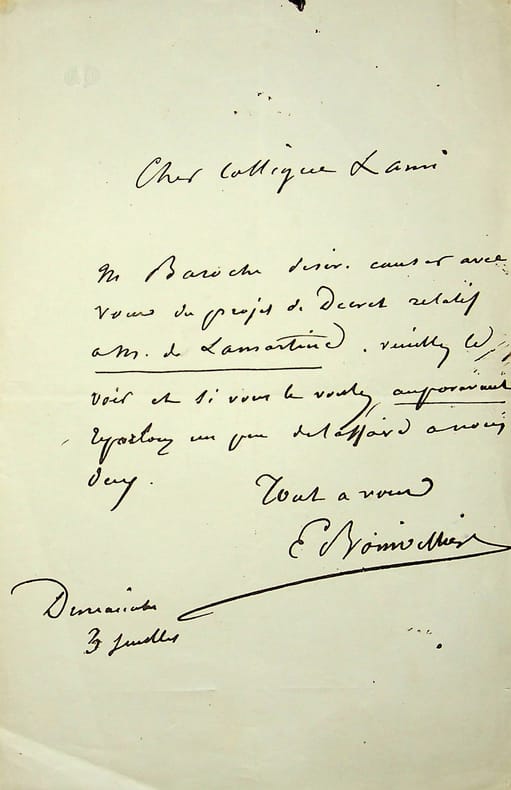 Cher Collègue & ami
M Baroche désire causer avec
vous du projet de Décret relatif
a M. de Lamartine. veuillez le
voir et si vous le voulez, auparavant
un peu de l'affaire a nous
deux.
Tout a vous
E Boinvilliers
Dimanche
3 juillet